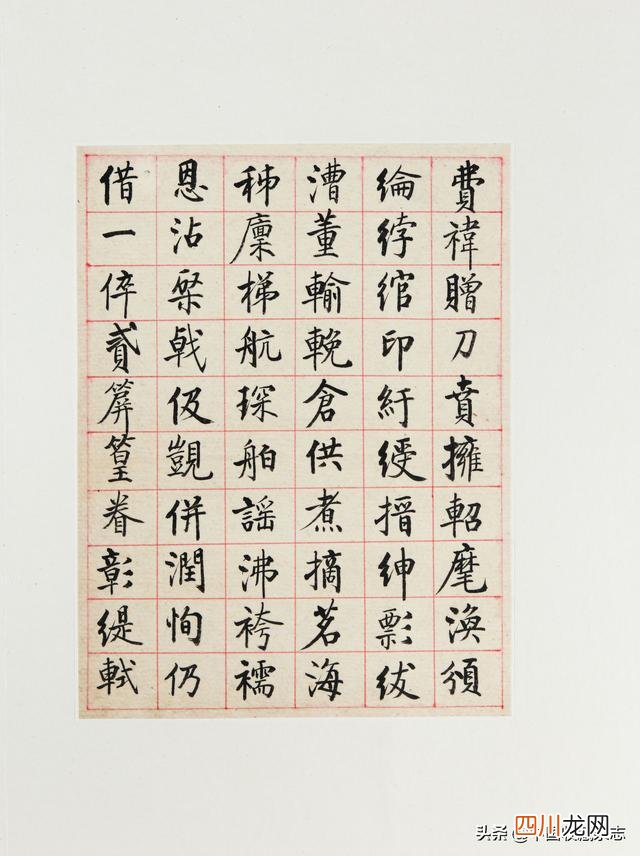 費禕贈刀賁擁軺麾渙頒
綸綍綰印紆綬搢紳彯紱
漕董輸輓倉供煮摘茗海
秭廩梯航琛舶謡沸袴襦
恩沾棨戟伋覬併潤恂仍
借一倅貳篿篁眷彰緹軾
头条@
四川龙网